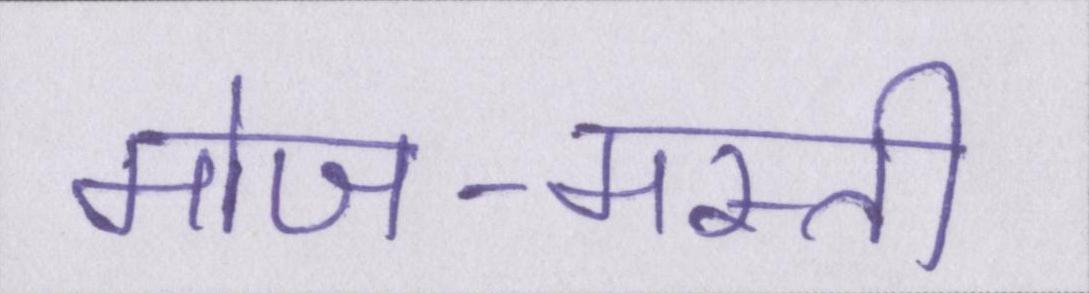 मोज-मस्ती